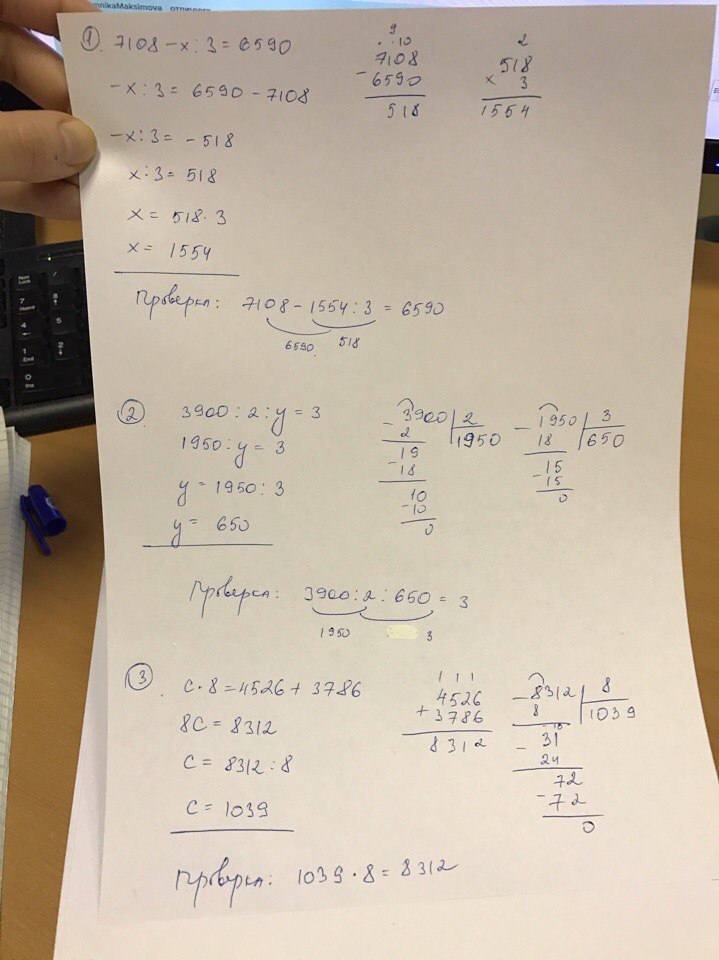 mnikaMaksimova отличник
1 7108 - x : 3 = 6590
- x : 3 = 6590 - 7108
- x : 3 = - 518
x : 3 = 518
x = 518 · 3
x = 1554
9
· · 10
7108
- 6590
518
2
518
× 3
1554
Проверка: 7108 - 1554 : 3 = 6590
6590 518
2 3900 : 2 : y = 3
1950 : y = 3
y = 1950 : 3
y = 650
- 3900 2
2 1950
19
- 18
10
- 10
0
- 1950 3
18 650
15
- 15
0
Проверка: 3900 : 2 : 650 = 3
1950 3
3 c · 8 = 4526 + 3786
8c = 8312
c = 8312 : 8
c = 1039
1 1 1
4526
+ 3786
8312
- 8312 8
8 1039
· 10
- 31
24
72
- 72
0
Проверка: 1039 · 8 = 8312
Num
Lock
/
7
Home
8
4
5
1
End
2
0
Ins